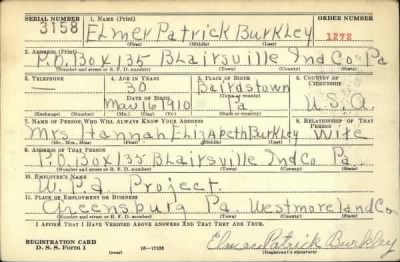 SERIAL NUMBER 1. NAME (Print) ORDER NUMBER
3158 Elmer Patrick Burkley 1272
(First) (Middle) (Last)
2. ADDRESS (Print)
P.O. Box 135 Blairsville Ind Co Pa
(Number and street or R. F. D. number) (Town) (County) (State)
3. TELEPHONE 4. AGE IN YEARS 5. PLACE OF BIRTH 6. COUNTRY OF CITIZENSHIP
— 30 Bairdstown
DATE OF BIRTH (Town or county)
May 16 1910 Pa U.S.A.
(Mo.) (Day) (Yr.) (State or country)
7. NAME OF PERSON WHO WILL ALWAYS KNOW YOUR ADDRESS 8. RELATIONSHIP OF THAT PERSON
Mrs Hannah Elizabeth Burkley Wife
(Mr., Mrs., Miss) (First) (Middle) (Last)
9. ADDRESS OF THAT PERSON
P.O. Box 135 Blairsville Ind Co Pa
(Number and street or R. F. D. number) (Town) (County) (State)
10. EMPLOYER'S NAME
W.P.a Project
11. PLACE OF EMPLOYMENT OR BUSINESS
Greensburg Pa. Westmoreland Co
(Number and street or R. F. D. number) (Town) (County) (State)
I AFFIRM THAT I HAVE VERIFIED ABOVE ANSWERS AND THAT THEY ARE TRUE.
REGISTRATION CARD Elmer Patrick Burkley
D. S. S. Form 1 (over) (Registrant's signature)